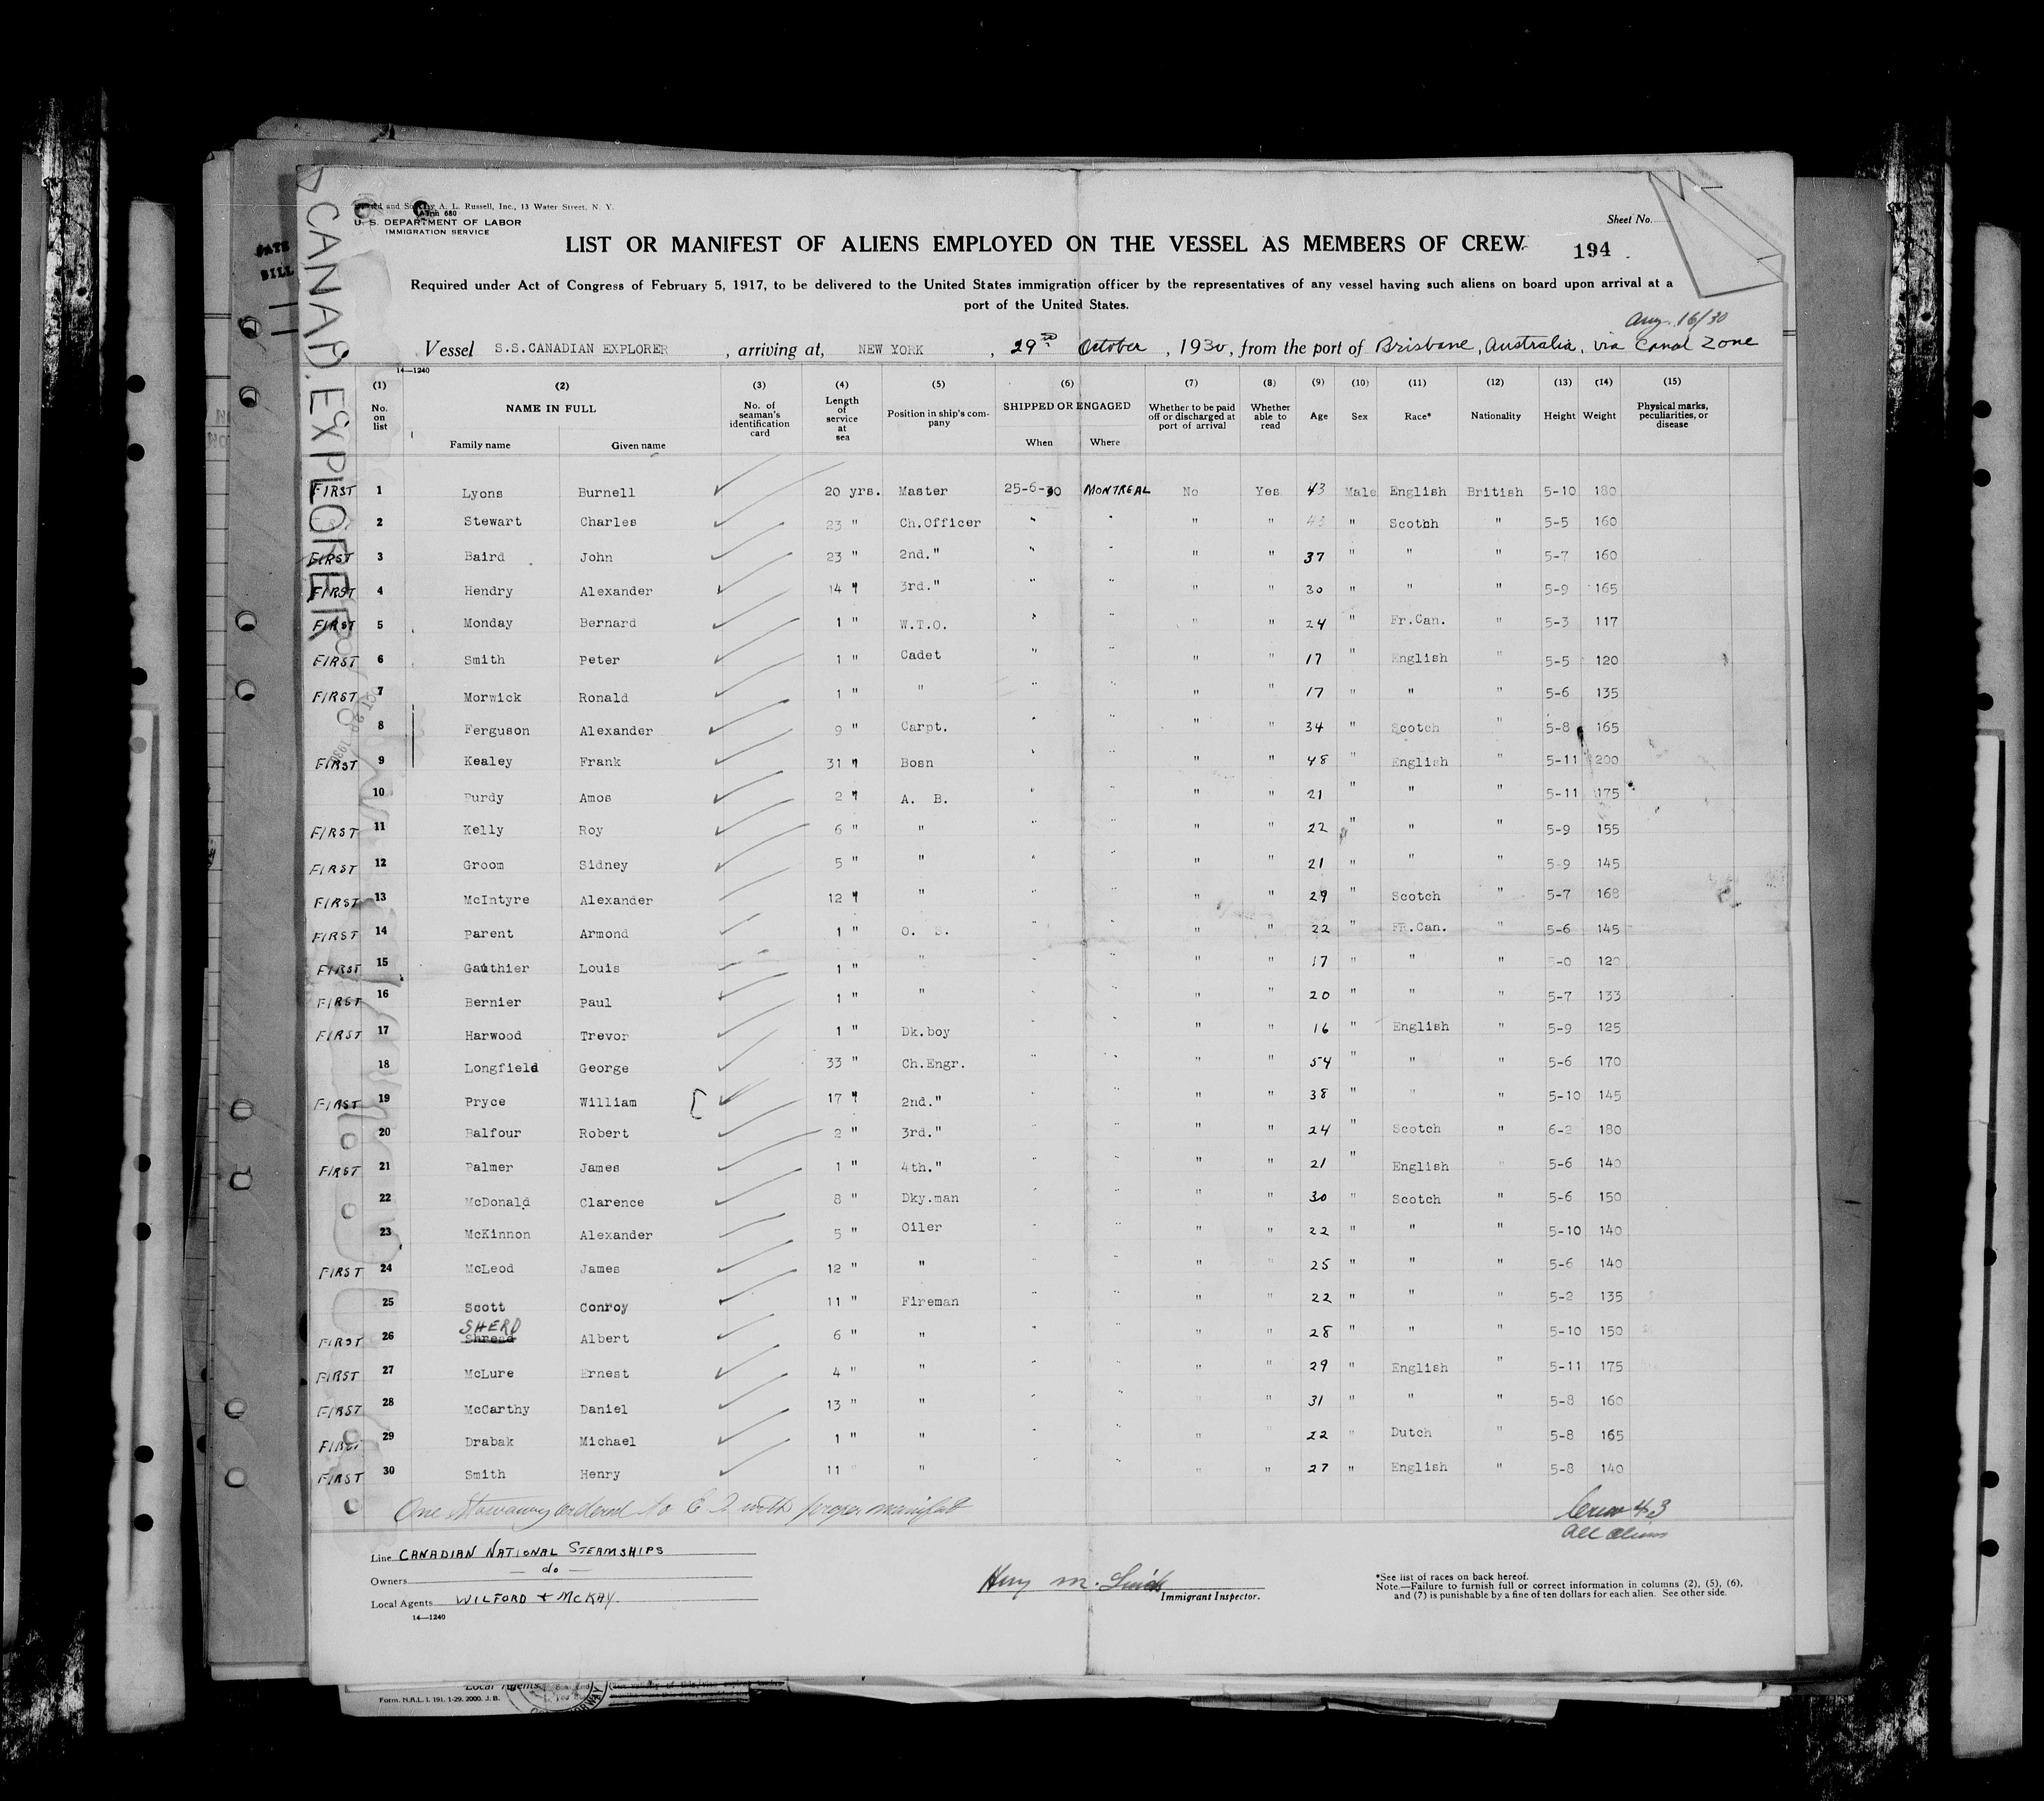 CANAD. EXPLORER
Printed and Sold by A. L. Russell, Inc., 13 Water Street, N. Y.
Form 680
U. S. DEPARTMENT OF LABOR
IMMIGRATION SERVICE
Sheet No.
LIST OR MANIFEST OF ALIENS EMPLOYED ON THE VESSEL AS MEMBERS OF CREW
194
Required under Act of Congress of February 5, 1917, to be delivered to the United States immigration officer by the representatives of any vessel having such aliens on board upon arrival at a
port of the United States.
Aug. 16/30
Vessel S.S.CANADIAN EXPLORER, arriving at, NEW YORK, 29 October, 1930, from the port of Brisbane, Australia, via Canal Zone
14—1240
(1) (2) (3) (4) (5) (6) (7) (8) (9) (10) (11) (12) (13) (14) (15)
No. on list NAME IN FULL Family name Given name No. of seaman's identification card Length of service at sea Position in ship's company SHIPPED OR ENGAGED When Where Whether to be paid off or discharged at port of arrival Whether able to read Age Sex Race* Nationality Height Weight Physical marks, peculiarities, or disease
FIRST 1 Lyons Burnell 20 yrs. Master 25-6-30 MONTREAL No Yes 43 Male English British 5-10 180
2 Stewart Charles 23 " Ch.Officer " " " " 43 " Scotch " 5-5 160
FIRST 3 Baird John 23 " 2nd." " " " " 37 " " " 5-7 160
FIRST 4 Hendry Alexander 14 " 3rd." " " " " 30 " " " 5-9 165
FIRST 5 Monday Bernard 1 " W.T.O. " " " " 24 " Fr.Can. " 5-3 117
FIRST 6 Smith Peter 1 " Cadet " " " " 17 " English " 5-5 120
FIRST 7 Morwick Ronald 1 " " " " " " 17 " " " 5-6 135
8 Ferguson Alexander 9 " Carpt. " " " " 34 " Scotch " 5-8 165
FIRST 9 Kealey Frank 31 " Bosn " " " " 48 " English " 5-11 200
10 Purdy Amos 2 " A. B. " " " " 21 " " " 5-11 175
FIRST 11 Kelly Roy 6 " " " " " " 22 " " " 5-9 155
FIRST 12 Groom Sidney 5 " " " " " " 21 " " " 5-9 145
FIRST 13 McIntyre Alexander 12 " " " " " " 29 " Scotch " 5-7 168
FIRST 14 Parent Armond 1 " O. S. " " " " 22 " FR.Can. " 5-6 145
FIRST 15 Gauthier Louis 1 " " " " " " 17 " " " 5-0 120
FIRST 16 Bernier Paul 1 " " " " " " 20 " " " 5-7 133
FIRST 17 Harwood Trevor 1 " Dk.boy " " " " 16 " English " 5-9 125
18 Longfield George 33 " Ch.Engr. " " " " 54 " " " 5-6 170
FIRST 19 Pryce William 17 " 2nd." " " " " 38 " " " 5-10 145
20 Balfour Robert 2 " 3rd." " " " " 24 " Scotch " 6-2 180
FIRST 21 Palmer James 1 " 4th." " " " " 21 " English " 5-6 140
22 McDonald Clarence 8 " Dky.man " " " " 30 " Scotch " 5-6 150
23 McKinnon Alexander 5 " Oiler " " " " 22 " " " 5-10 140
FIRST 24 McLeod James 12 " " " " " " 25 " " " 5-6 140
25 Scott Conroy 11 " Fireman " " " " 22 " " " 5-2 135
SHERD
FIRST 26 Albert 6 " " " " " " 28 " " " 5-10 150
FIRST 27 McLure Ernest 4 " " " " " " 29 " English " 5-11 175
FIRST 28 McCarthy Daniel 13 " " " " " " 31 " " " 5-8 160
FIRST 29 Drabak Michael 1 " " " " " " 22 " Dutch " 5-8 165
FIRST 30 Smith Henry 11 " " " " " " 27 " English " 5-8 140
One Stowaway ordered to with proper manifest
Crew 43
All aliens
Line CANADIAN NATIONAL STEAMSHIPS
Owners — do —
Local Agents WILFORD + McKAY
14—1240
Immigrant Inspector.
*See list of races on back hereof.
Note.—Failure to furnish full or correct information in columns (2), (5), (6),
and (7) is punishable by a fine of ten dollars for each alien. See other side.
Local Agents
Form. N.A.L. I. 191. 1-29. 2000. J. B.